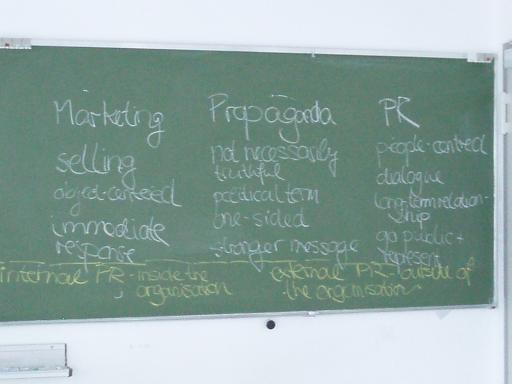 Marketing
selling
object-centered
immediate
response
Propaganda
not necessarily
truthful
political term
one-sided
stronger message
PR
people-centred
dialogue
long-term relation-
ship
go public +
represent
internal PR - inside the
organisation
external PR - outside of
the organisation